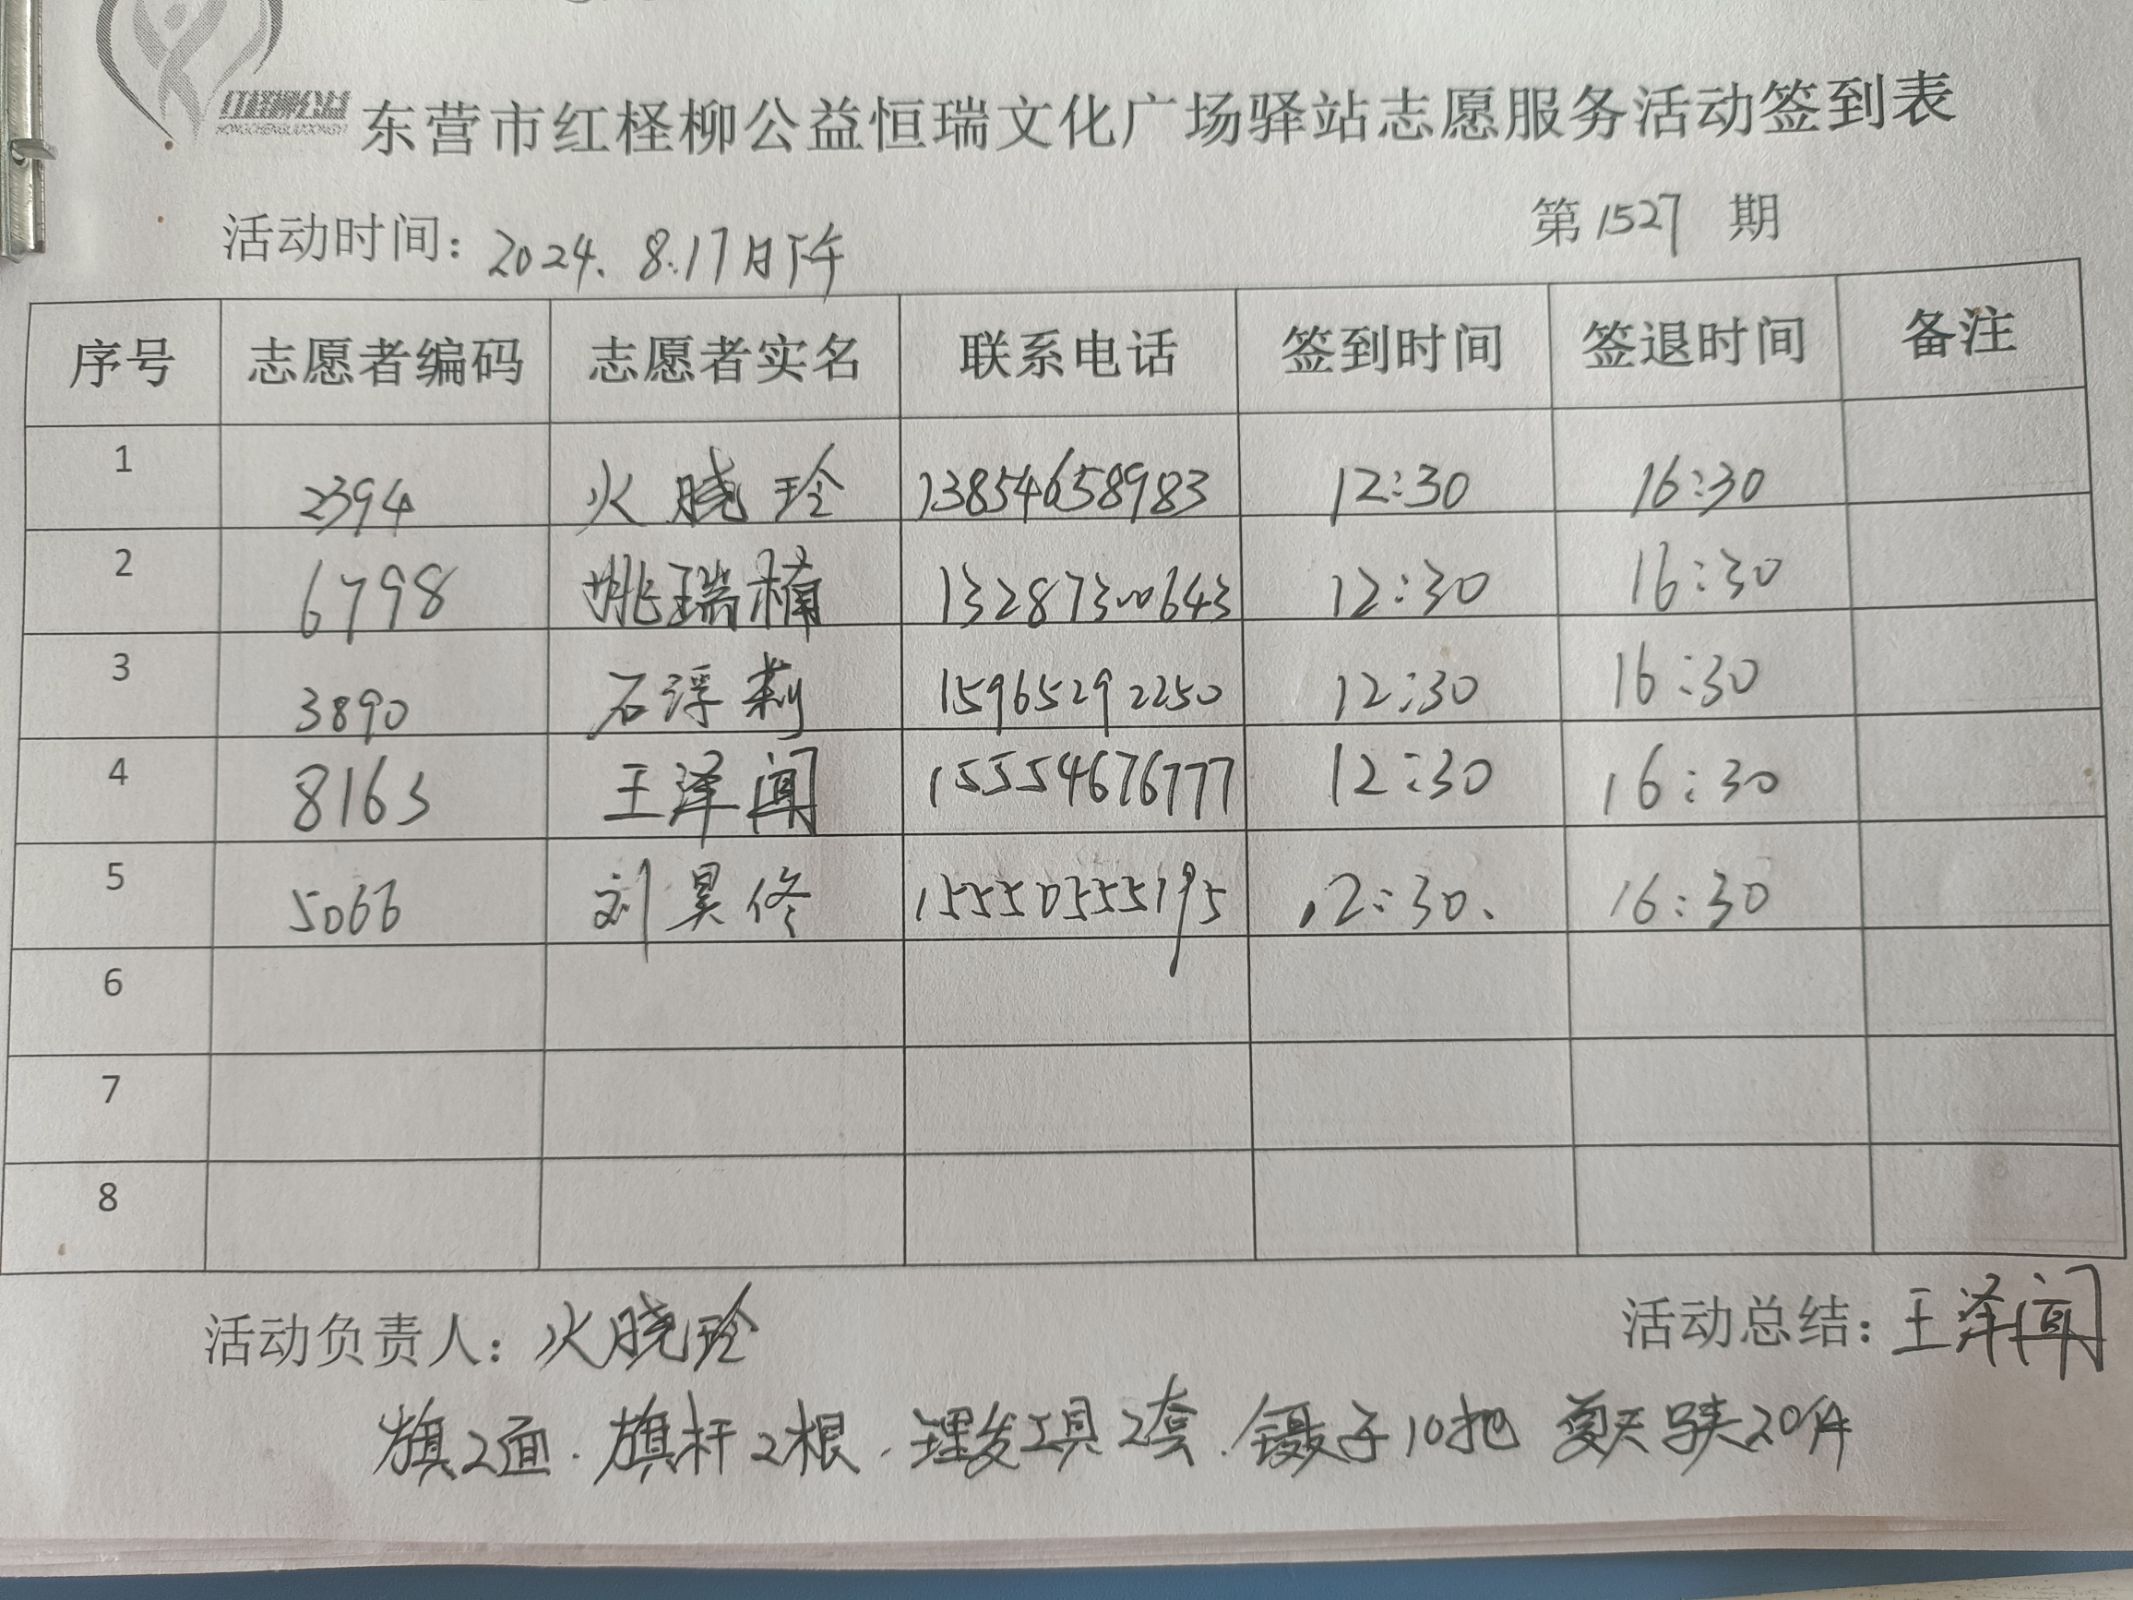 红柽柳公益
HONGCHENGLIUGONGYI
东营市红柽柳公益恒瑞文化广场驿站志愿服务活动签到表
活动时间：2024.8.17日下午 第1527期
序号 志愿者编码 志愿者实名 联系电话 签到时间 签退时间 备注
1 2394 火晓玲 13854658983 12:30 16:30
2 6798 姚瑞楠 13287300643 12:30 16:30
3 3890 石浮莉 15965292250 12:30 16:30
4 8163 王泽闻 15554676777 12:30 16:30
5 5066 刘昊佟 15550555195 12:30. 16:30
6
7
8
活动负责人：火晓玲 活动总结：王泽闻
旗2面.旗杆2根.理发工具2套.镊子10把 夏天马夹20件